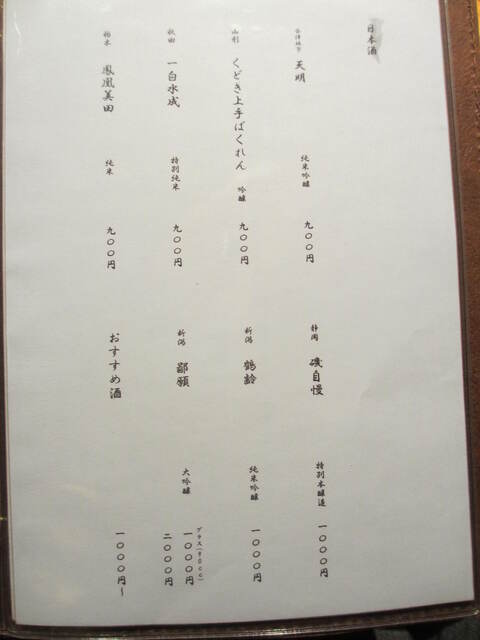 日本酒
会津坂下 天明 純米吟醸 九〇〇円
山形 くどき上手ばくれん 吟醸 九〇〇円
秋田 一白水成 特別純米 九〇〇円
栃木 鳳凰美田 純米 九〇〇円
静岡 磯自慢 特別本醸造 一〇〇〇円
新潟 鶴齢 純米吟醸 一〇〇〇円
新潟 鄙願 大吟醸 グラス(90cc) 一〇〇〇円
二〇〇〇円
おすすめ酒 一〇〇〇円～